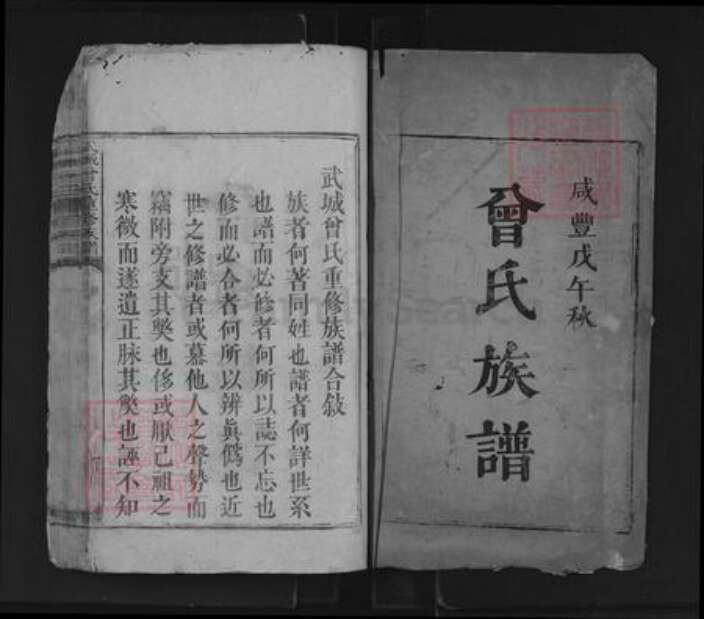 咸豐戊午秋
曾氏族譜
武城曾氏重修族譜合敘
族者何著同姓也譜者何詳世系
也譜而必修者何所以誌不忘也
修而必合者何所以辨眞僞也近
世之修譜者或慕他人之聲勢而
竊附旁支其獘也侈或厭己祖之
寒微而遂遺正脉其獘也誣不知